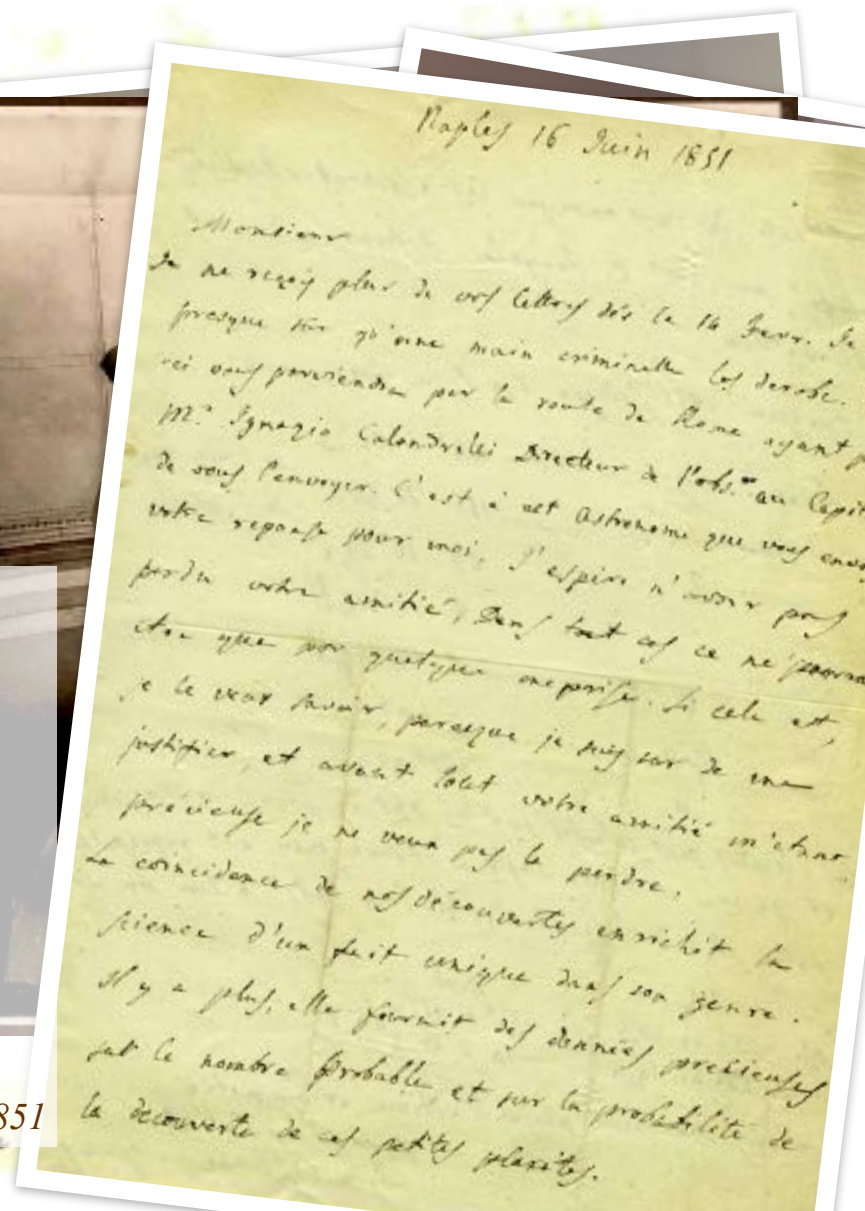 Naples 16 Juin 1851
Monsieur
Je ne reçois plus de vos lettres dès le 14 Fevr. Je
presque sûr qu'une main criminelle les derobe.
ci vous parviendra par la route de Rome ayant p
Mr. Ignazio Calandrelli Directeur de l'obs.re au Capit
de vous l'envoyer. C'est à cet Astronome que vous
votre reponse pour moi. J'espère n'avoir pas
perdu votre amitié, Dans tout cas ce ne
etre que par quelque meprise. Si cela est,
je le veux savoir, paresque je suis sur de me
justifier, et avant tout votre amitié m'etant
précieuse je ne veux pas la perdre.
La coincidence de nos découvertes enrichit la
science d'un fait unique dans son genre.
Il y a plus, elle fournit des données precieuses
sur le nombre probable et sur la probabilité de
la decouverte de ces petites planètes.
851